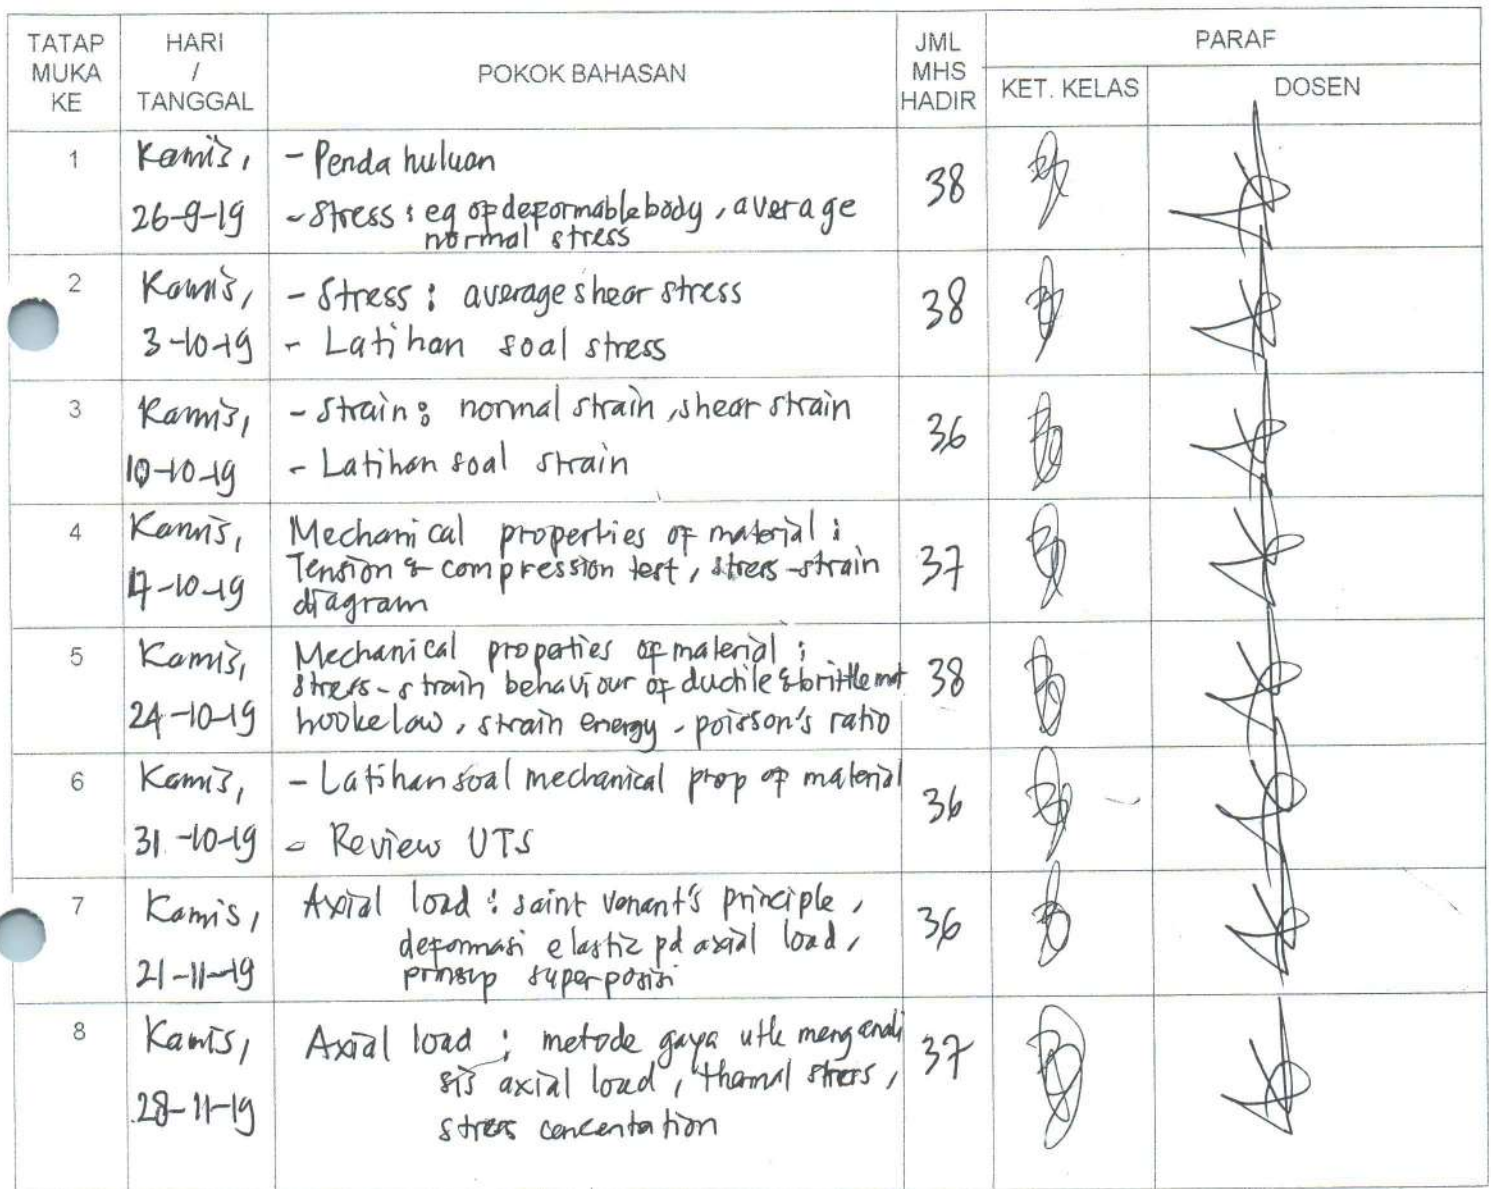 TATAP MUKA KE
HARI / TANGGAL
POKOK BAHASAN
JML MHS HADIR
PARAF
KET. KELAS
DOSEN
1
Kamis,
26-9-19
- Pendahuluan
- Stress : eq of deformable body, average
normal stress
38
2
Kamis,
3-10-19
- Stress : average shear stress
- Latihan soal stress
38
3
Kamis,
10-10-19
- Strain : normal strain, shear strain
- Latihan soal strain
36
4
Kamis,
17-10-19
Mechanical properties of material :
Tension & compression test, stress-strain
diagram
37
5
Kamis,
24-10-19
Mechanical properties of material :
stress-strain behaviour of ductile & brittle mat
hooke law, strain energy, poisson's ratio
38
6
Kamis,
31-10-19
- Latihan soal mechanical prop of material
- Review UTS
36
7
Kamis,
21-11-19
Axial load : saint venant's principle,
deformasi elastic pd axial load,
prinsip superposisi
36
8
Kamis,
28-11-19
Axial load : metode gaya utk menganali
sis axial load, thermal stress,
stress concentation
37